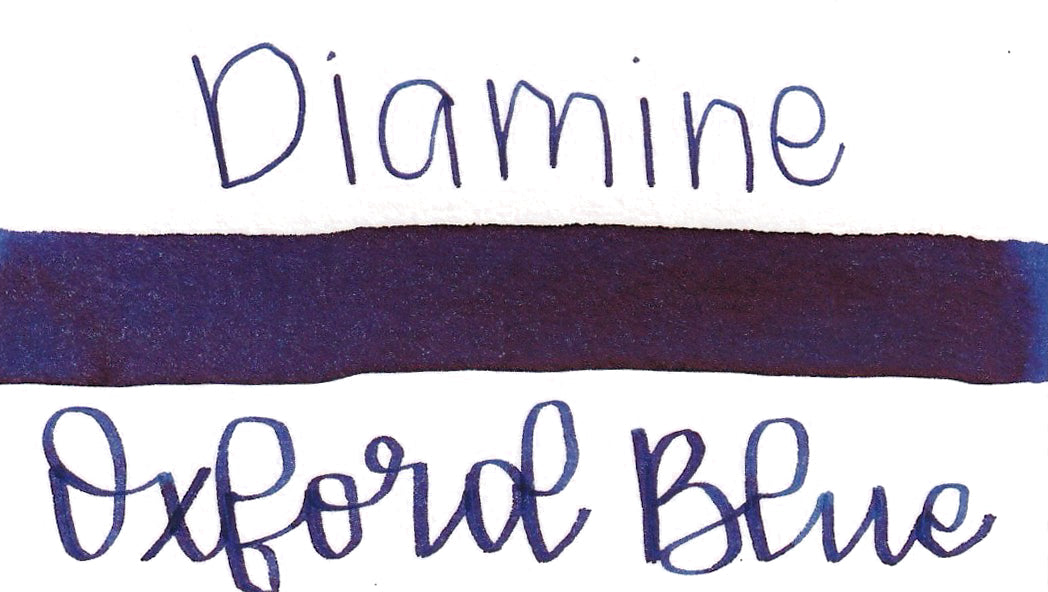 Diamine
Oxford Blue